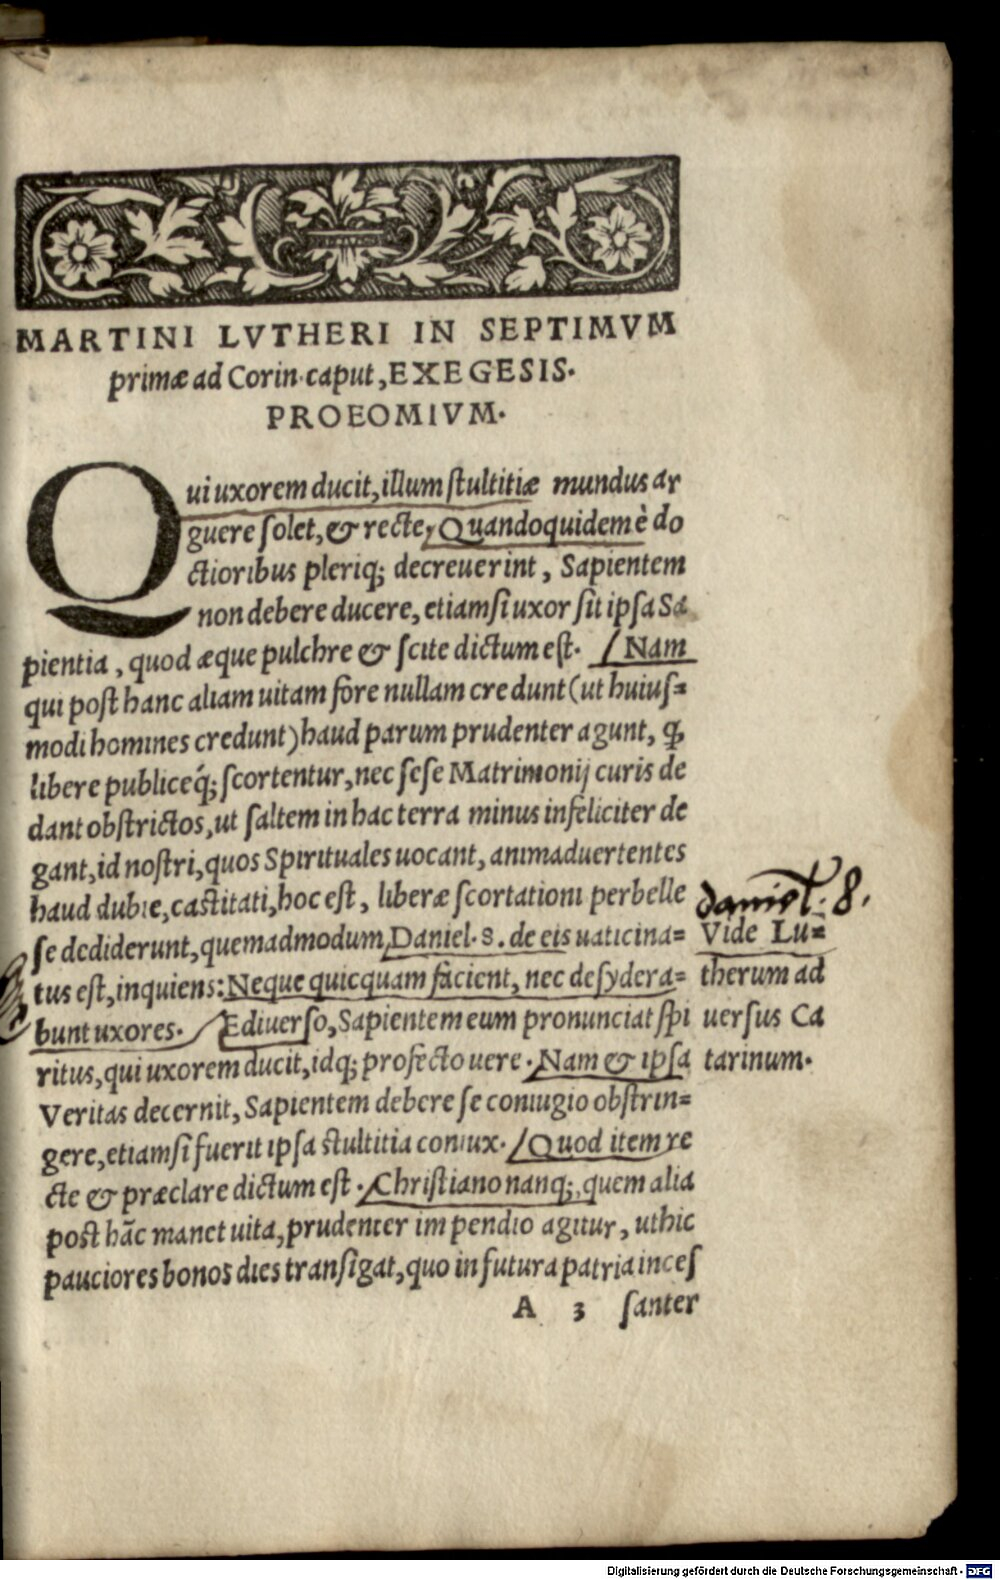 MARTINI LVTHERI IN SEPTIMVM
primæ ad Corin. caput, EXEGESIS.
PROEOMIVM.
Qui uxorem ducit, illum ſtultitiæ mundus ar
guere ſolet, & recte, Quandoquidem è do
ctioribus pleriq; decreuerint, Sapientem
non debere ducere, etiamſi uxor ſit ipſa Sa
pientia, quod æque pulchre & ſcite dictum eſt. Nam
qui poſt hanc aliam uitam fore nullam credunt (ut huiuſ=
modi homines credunt) haud parum prudenter agunt, ꝙ
libere publiceq́; ſcortentur, nec ſeſe Matrimonij curis de
dant obſtrictos, ut ſaltem in hac terra minus infeliciter de
gant, id noſtri, quos Spirituales uocant, animaduertentes
haud dubie, caſtitati, hoc eſt, liberæ ſcortationi perbelle
daniel. 8.
ſe dediderunt, quemadmodum Daniel. 8. de eis uaticina=
Vide Lu=
tus eſt, inquiens: Neque quicquam facient, nec deſydera=
therum ad
bunt uxores. Ediuerſo, Sapientem eum pronunciat ſpi
uerſus Ca
ritus, qui uxorem ducit, idq; profecto uere. Nam & ipſa
tarinum.
Veritas decernit, Sapientem debere ſe coniugio obſtrin=
gere, etiamſi fuerit ipſa ſtultitia coniux. Quod item re
cte & præclare dictum eſt. Chriſtiano nanq;, quem alia
poſt hãc manet uita, prudenter impendio agitur, ut hic
pauciores bonos dies tranſigat, quo in futura patria inceſ
A 3 ſanter
Digitalisierung gefördert durch die Deutsche Forschungsgemeinschaft - DFG